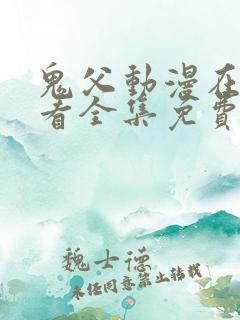 鬼父動漫在
看全集免費
魏士德
未任同意禁止转载